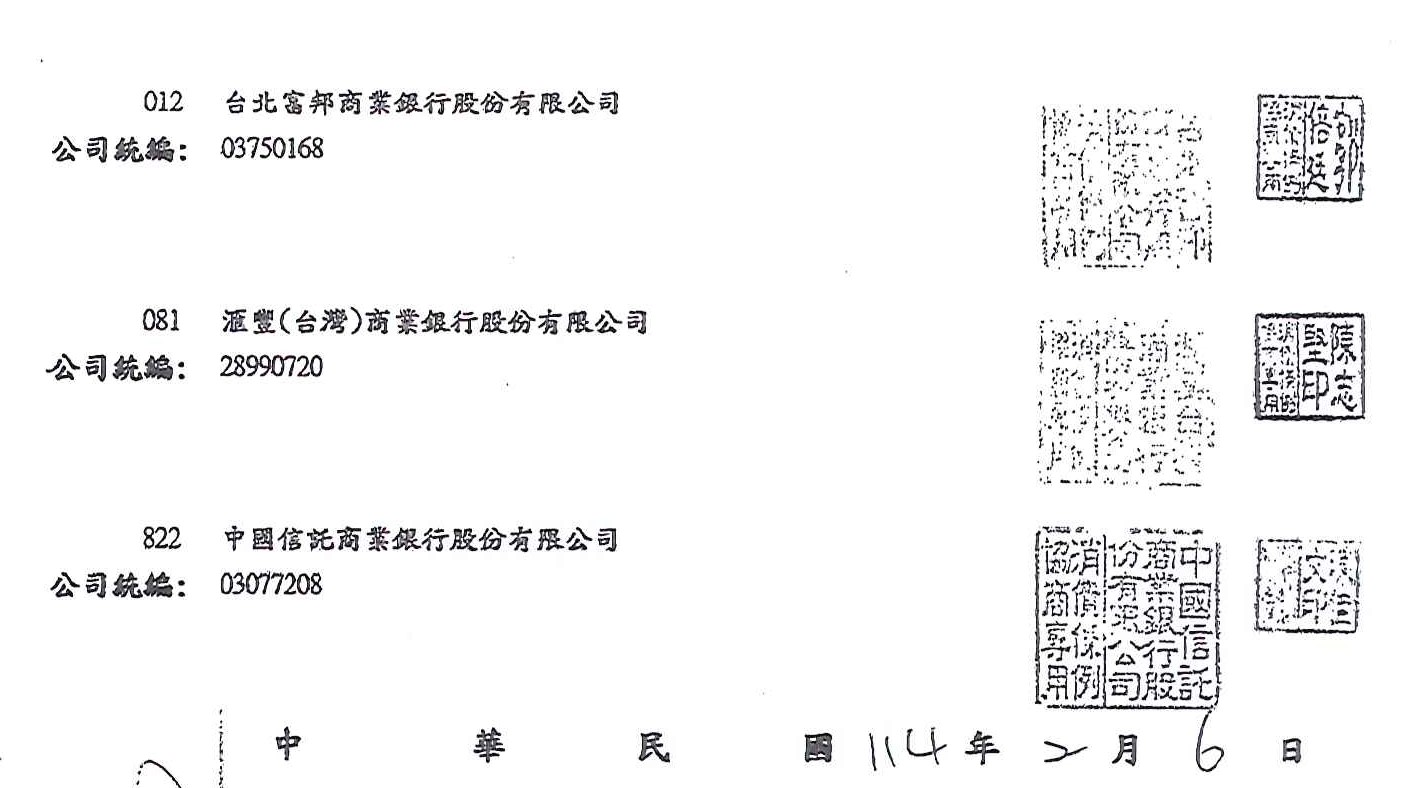 012 台北富邦商業銀行股份有限公司
公司統編： 03750168
081 滙豐(台灣)商業銀行股份有限公司
公司統編： 28990720
陳志
堅印
822 中國信託商業銀行股份有限公司
公司統編： 03077208
中國信託
商業銀行股
份有限公司
消債條例
協商專用
中華民國114年2月6日